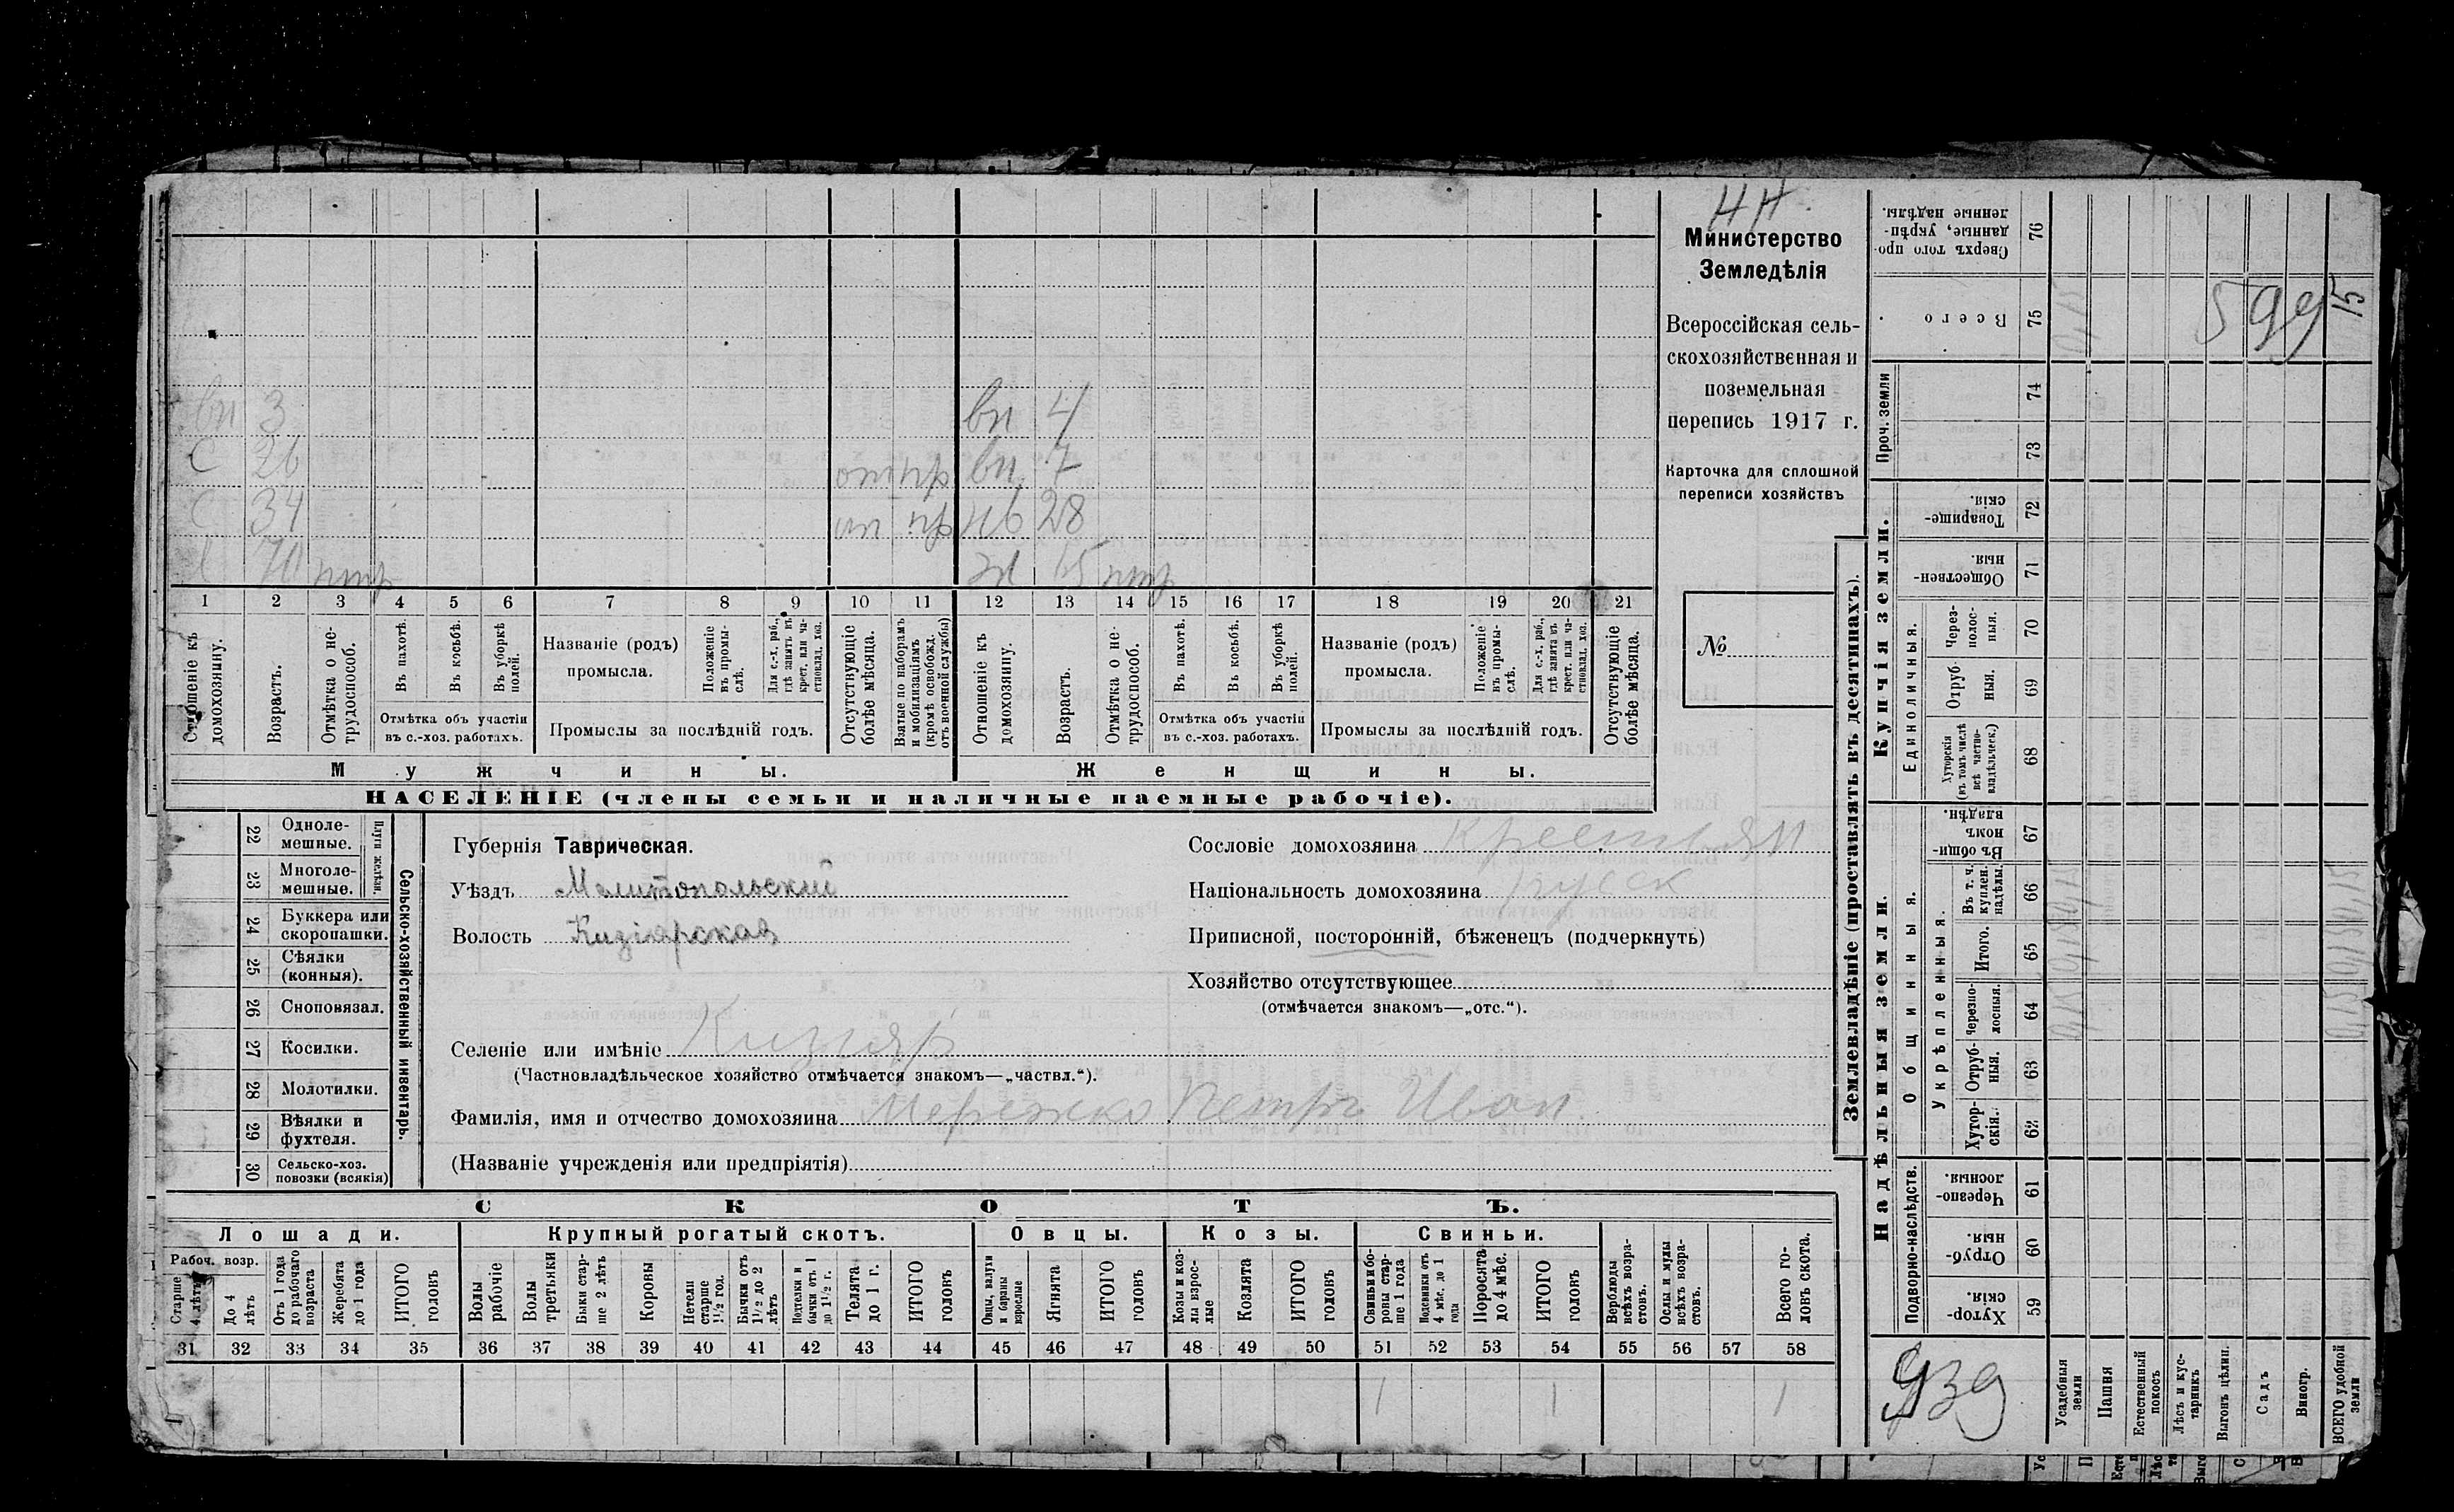 НН.
Министерство
Земледѣлія
Всероссійская сель-
скохозяйственная и
поземельная
перепись 1917 г.
Карточка для сплошной
переписи хозяйствъ
№
вн 3 вн 4
С 26 вн 7
С 34 нв 28
70 65
1 2 3 4 5 6 7 8 9 10 11 12 13 14 15 16 17 18 19 20 21
Отношеніе къ домохозяину.
Возрастъ.
Отмѣтка о не-трудоспособ.
Въ пахотѣ.
Въ косьбѣ.
Въ уборкѣ полей.
Отмѣтка объ участіи
въ с.-хоз. работахъ.
Названіе (родъ)
промысла.
Положеніе въ промы-слѣ.
Для с.-х. раб., гдѣ занятъ въ крест. или ча-стновлад. хоз.
Промыслы за послѣдній годъ.
Отсутствующіе болѣе мѣсяца.
Взятые по наборамъ и мобилизаціямъ (кромѣ освобожд. отъ военной службы)
Отношеніе къ домохозяину.
Возрастъ.
Отмѣтка о не-трудоспособ.
Въ пахотѣ.
Въ косьбѣ.
Въ уборкѣ полей.
Отмѣтка объ участіи
въ с.-хоз. работахъ.
Названіе (родъ)
промысла.
Положеніе въ промы-слѣ.
Для с.-х. раб., гдѣ занята въ крест. или ча-стновлад. хоз.
Промыслы за послѣдній годъ.
Отсутствующіе болѣе мѣсяца.
Мужчины. Женщины.
НАСЕЛЕНІЕ (члены семьи и наличные наемные рабочіе).
22 Однолемешные.
23 Многолемешные.
24 Буккера или скоропашки.
25 Сѣялки (конныя).
26 Сноповязал.
27 Косилки.
28 Молотилки.
29 Вѣялки и фухтеля.
30 Сельско-хоз. повозки (всякія)
Плуги желѣзн.
Сельско-хозяйственный инвентарь.
Губернія Таврическая.
Уѣздъ Мелитопольский
Волость Кизіярская
Сословіе домохозяина Крестьян
Національность домохозяина русск
Приписной, посторонній, бѣженецъ (подчеркнуть)
Хозяйство отсутствующее
(отмѣчается знакомъ—„отс.“).
Селеніе или имѣніе Кизияр
(Частновладѣльческое хозяйство отмѣчается знакомъ—„частвл.“).
Фамилія, имя и отчество домохозяина Мережко Петръ Иван.
(Названіе учрежденія или предпріятія)
СКОТЪ.
Лошади. Крупный рогатый скотъ. Овцы. Козы. Свиньи.
Рабоч. возр.
Старше 4 лѣтъ
До 4 лѣтъ
Отъ 1 года до рабочаго возраста
Жеребята до 1 года
ИТОГО головъ
Волы рабочіе
Волы третьяки
Быки стар-ше 2 лѣтъ
Коровы
Нетели старше 1½ год.
Бычки отъ 1½ до 2 лѣтъ
Подтелки и бычки отъ 1 до 1½ г.
Телята до 1 г.
ИТОГО головъ
Овцы, валухи и бараны взрослые
Ягнята
ИТОГО головъ
Козы и коз-лы взрос-лые
Козлята
ИТОГО головъ
Свиньи и бо-ровы стар-ше 1 года
Подсвинки отъ 4 мѣс. до 1 года
Поросята до 4 мѣс.
ИТОГО головъ
Верблюды всѣхъ возра-стовъ.
Ослы и мулы всѣхъ возра-стовъ.
Всего го-ловъ скота.
31 32 33 34 35 36 37 38 39 40 41 42 43 44 45 46 47 48 49 50 51 52 53 54 55 56 57 58
1 1 1
Землевладѣніе (проставлять въ десятинахъ).
Надѣльныя земли. Купчія земли. Проч. земли
Подворно-наслѣдств.
Общинныя.
Укрѣпленныя.
Единоличныя.
59 Хутор-скія.
60 Отруб-ныя.
61 Черезпо-лосныя.
62 Хутор-скія.
63 Отруб-ныя.
64 Черезпо-лосныя.
65 Итого.
66 Въ т. ч. куплен. надѣлы.
67 Въ общин-номъ владѣн.
68 Хуторскія (въ томъ числѣ всѣ частно-владѣльческ.)
69 Отруб-ныя.
70 Через-полос-ныя.
71 Обществен-ныя.
72 Товарище-скія.
73
74
75 Всего
76 Сверхъ того про-данные, укрѣп-ленные надѣлы.
599
939
Усадебныя земли
Пашня
Естественный покосъ
Лѣсъ и кус-тарникъ
Выгонъ цѣлин.
Садъ
Виногр.
ВСЕГО удобной земли